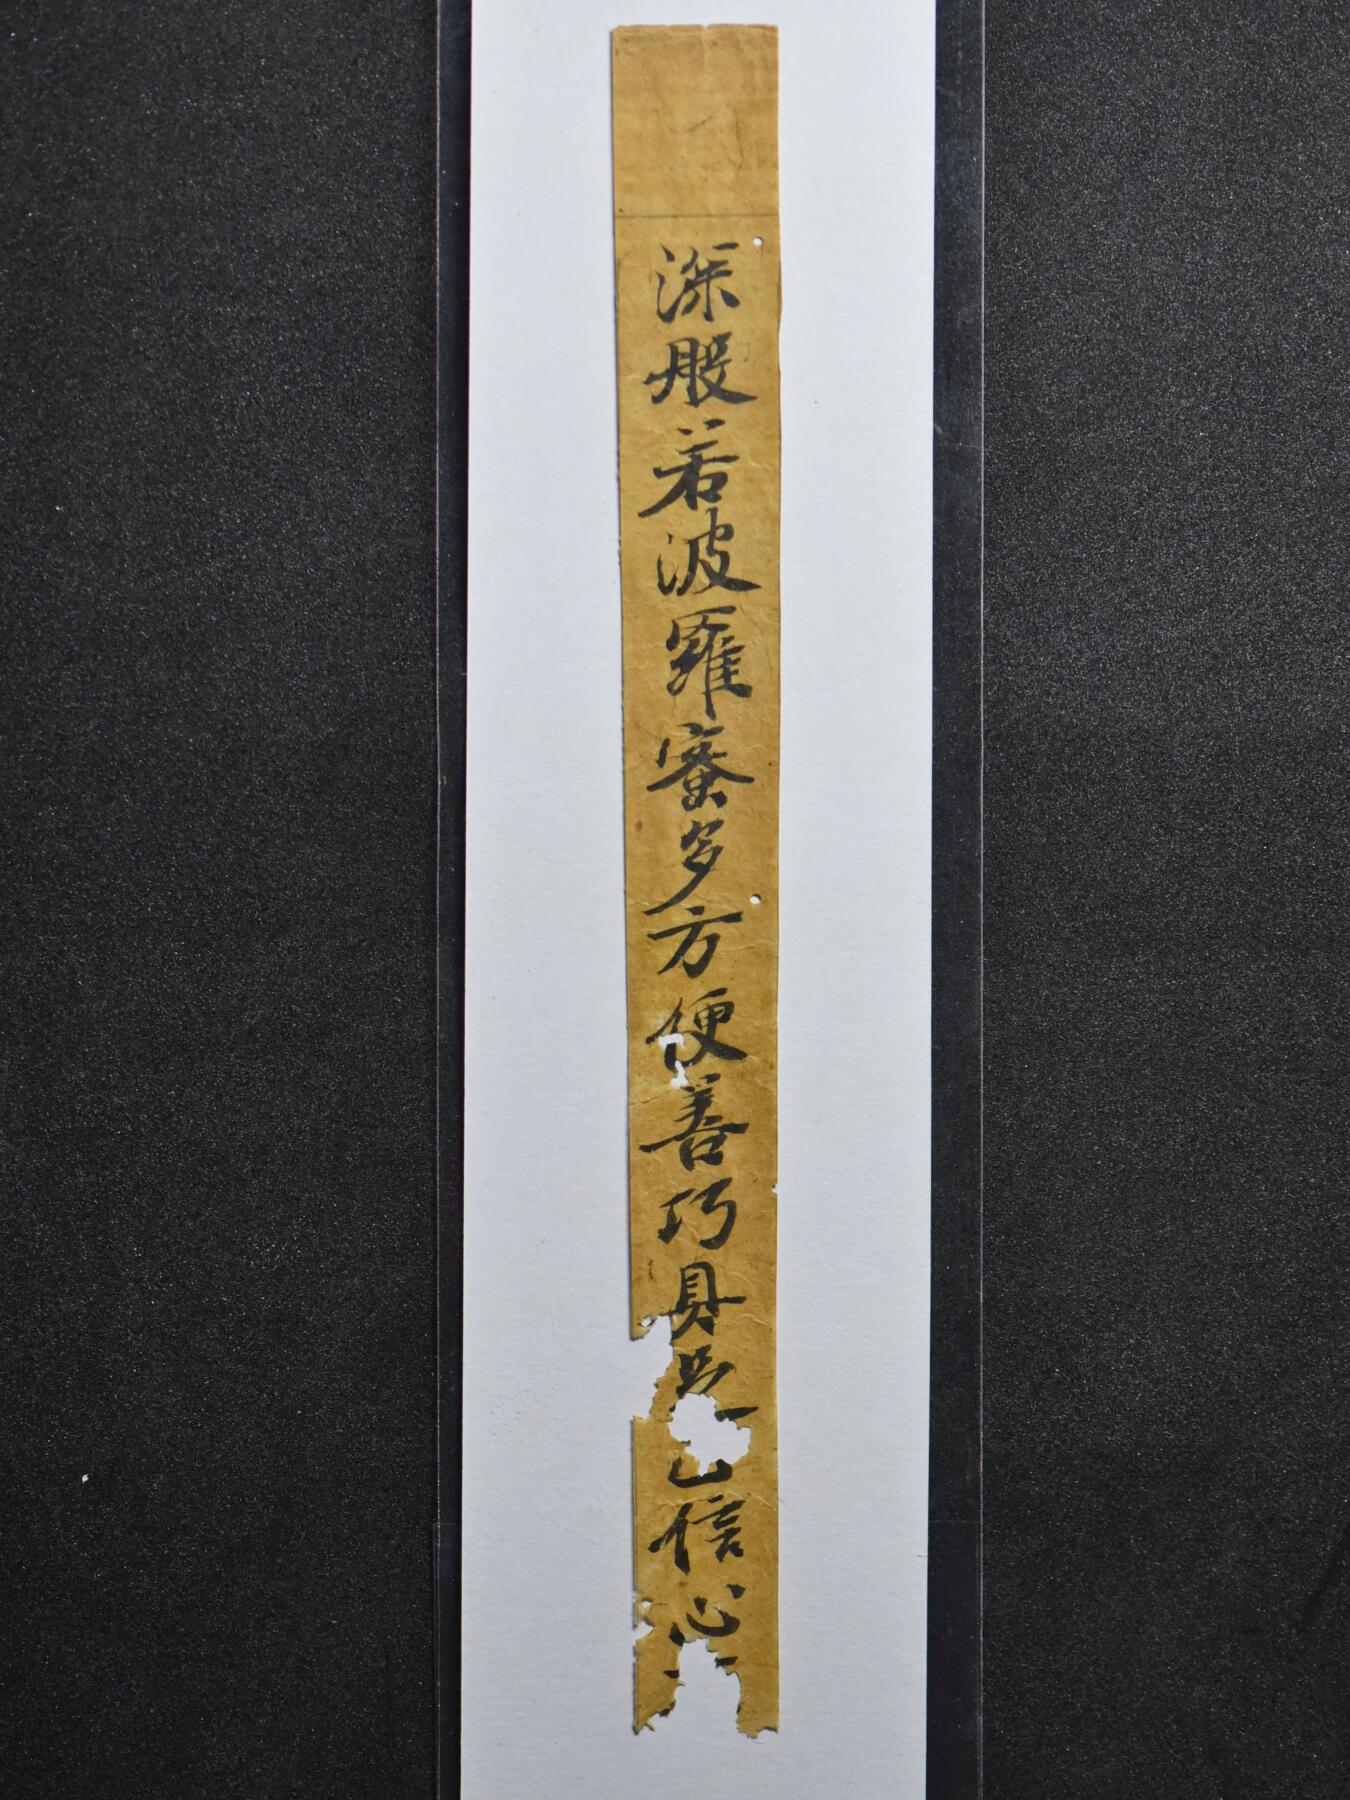 深般若波羅蜜多方便善巧具足已信心